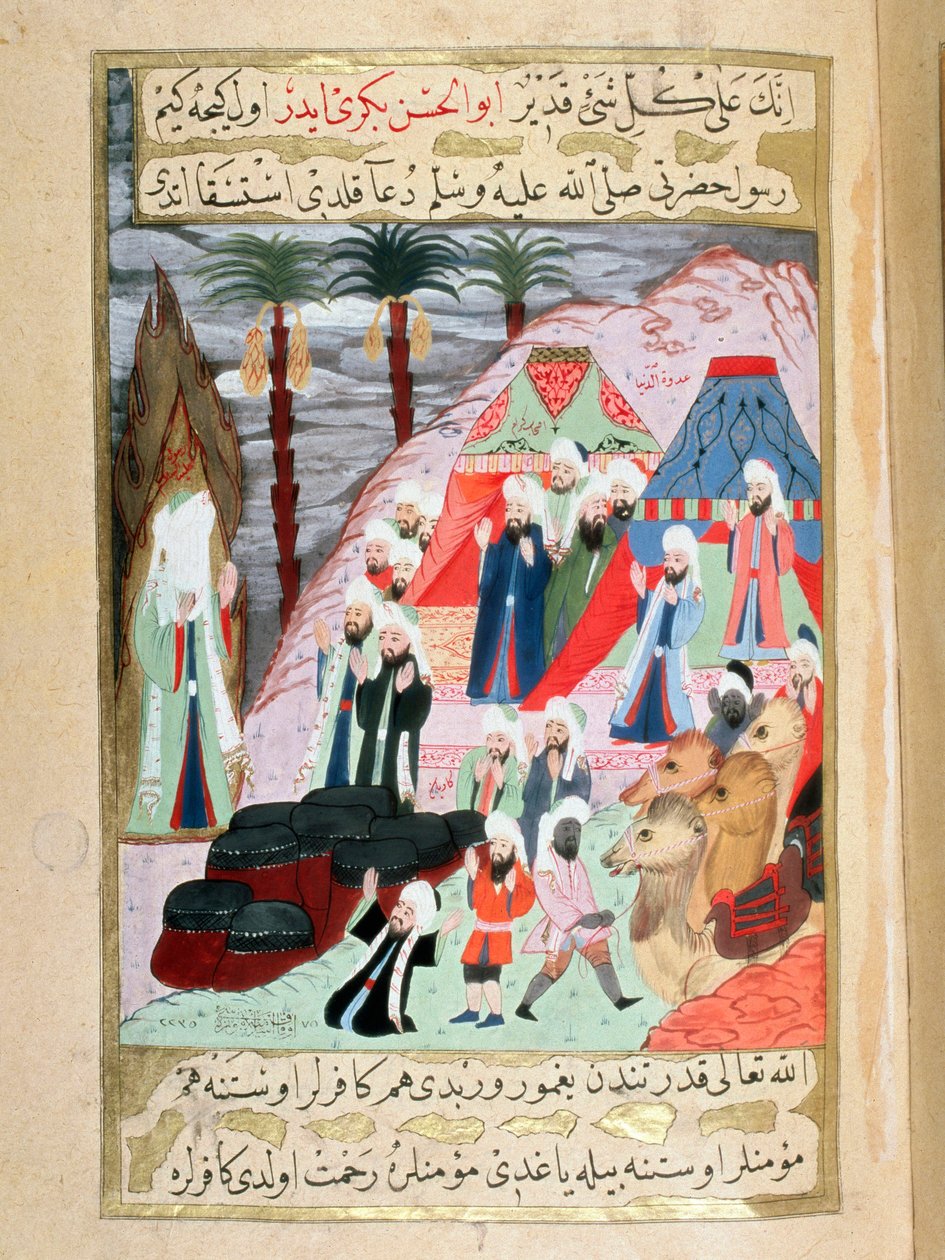 اِنَّكَ عَلٰى كُلِّ شَئٍ قَدِيرٌ ابو الحسن بكرى ايدر اول كيجه كيم
رسول حضرتى صلّى الله عليه وسلّم دُعآ قلدى استسقا اتدى
عدوة الدّنيا
الله تعالى قدرتندن يغمور وربدى هم كافرلر اوستنه هم
مؤمنلر اوستنه بيله ياغدى مؤمنلره رحمت اولدى كافرلره